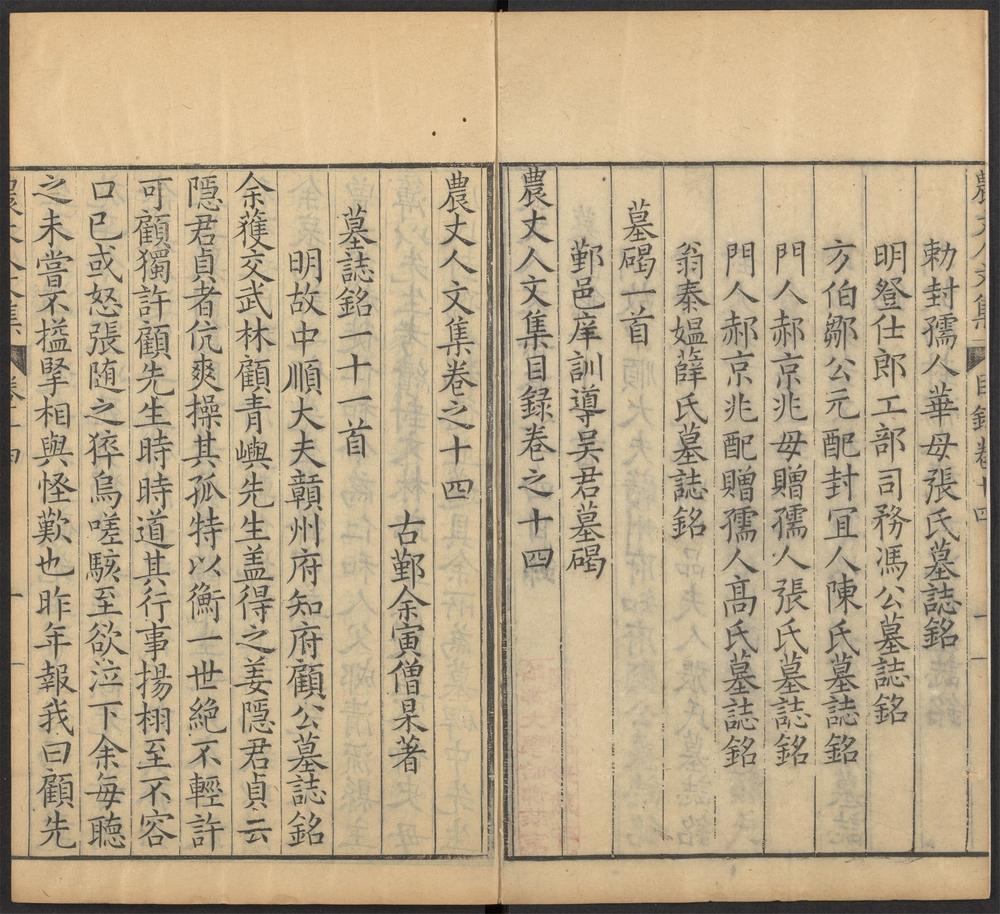 勅封孺人華母張氏墓誌銘
明登仕郎工部司務馮公墓誌銘
方伯鄒公元配封冝人陳氏墓誌銘
門人郝京兆母贈孺人張氏墓誌銘
門人郝京兆配贈孺人高氏墓誌銘
翁泰媪薛氏墓誌銘
墓碣一首
鄞邑庠訓導吴君墓碣
農丈人文集目録卷之十四
農丈人文集卷之十四
古鄞余寅僧杲著
墓誌銘一十一首
明故中順大夫贛州府知府顧公墓誌銘
余獲交武林顧青嶼先生盖得之姜隱君貞云
隱君貞者伉爽操其孤特以衡一世絶不輕許
可顧獨許顧先生時時道其行事揚栩至不容
口已或怒張随之猝烏嗟駭至欲泣下余每聽
之未嘗不搤掔相與怪歎也昨年報我曰顧先